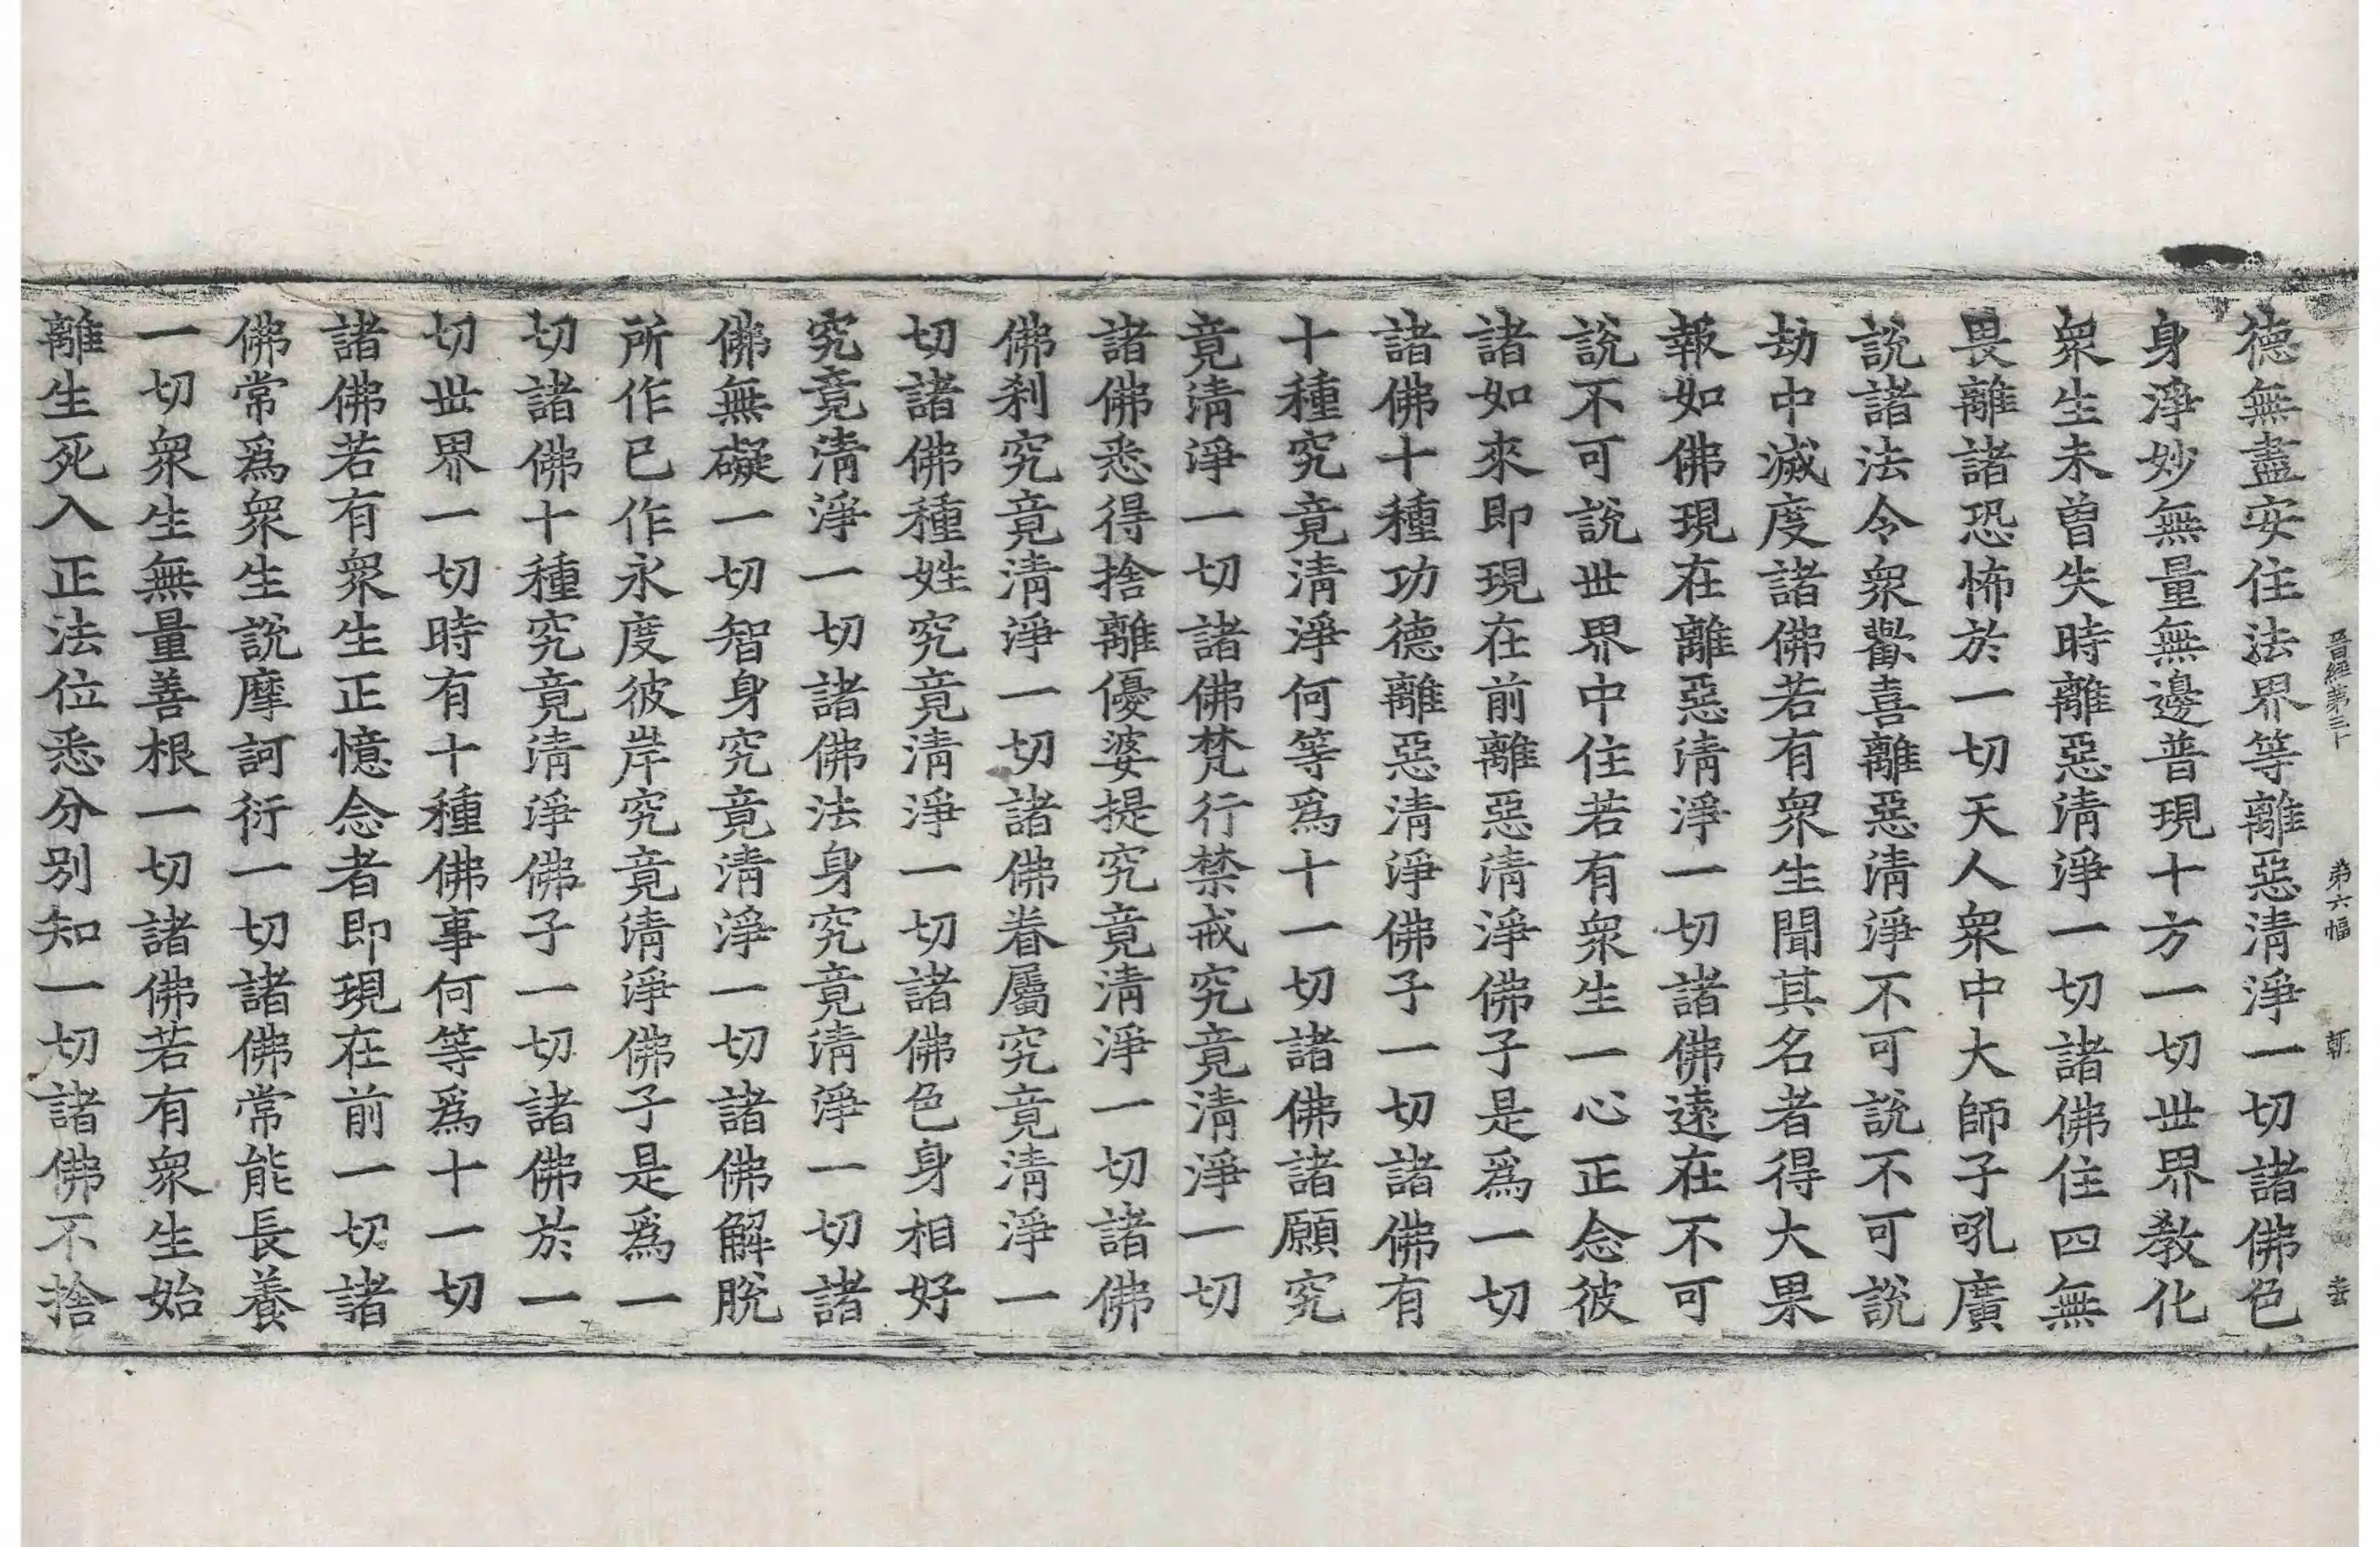 晉經第三十 第六幅 朝
德無盡安住法界等離惡清淨一切諸佛色
身淨妙無量無邊普現十方一切世界教化
衆生未曾失時離惡清淨一切諸佛住四無
畏離諸恐怖於一切天人衆中大師子吼廣
說諸法令衆歡喜離惡清淨不可說不可說
劫中滅度諸佛若有衆生聞其名者得大果
報如佛現在離惡清淨一切諸佛遠在不可
說不可說世界中住若有衆生一心正念彼
諸如來即現在前離惡清淨佛子是爲一切
諸佛十種功德離惡清淨佛子一切諸佛有
十種究竟清淨何等爲十一切諸佛諸願究
竟清淨一切諸佛梵行禁戒究竟清淨一切
諸佛悉得捨離優婆提究竟清淨一切諸佛
佛刹究竟清淨一切諸佛眷屬究竟清淨一
切諸佛種姓究竟清淨一切諸佛色身相好
究竟清淨一切諸佛法身究竟清淨一切諸
佛無礙一切智身究竟清淨一切諸佛解脫
所作已作永度彼岸究竟清淨佛子是爲一
切諸佛十種究竟清淨佛子一切諸佛於一
切世界一切時有十種佛事何等爲十一切
諸佛若有衆生正憶念者即現在前一切諸
佛常爲衆生說摩訶衍一切諸佛常能長養
一切衆生無量善根一切諸佛若有衆生始
離生死入正法位悉分別知一切諸佛不捨